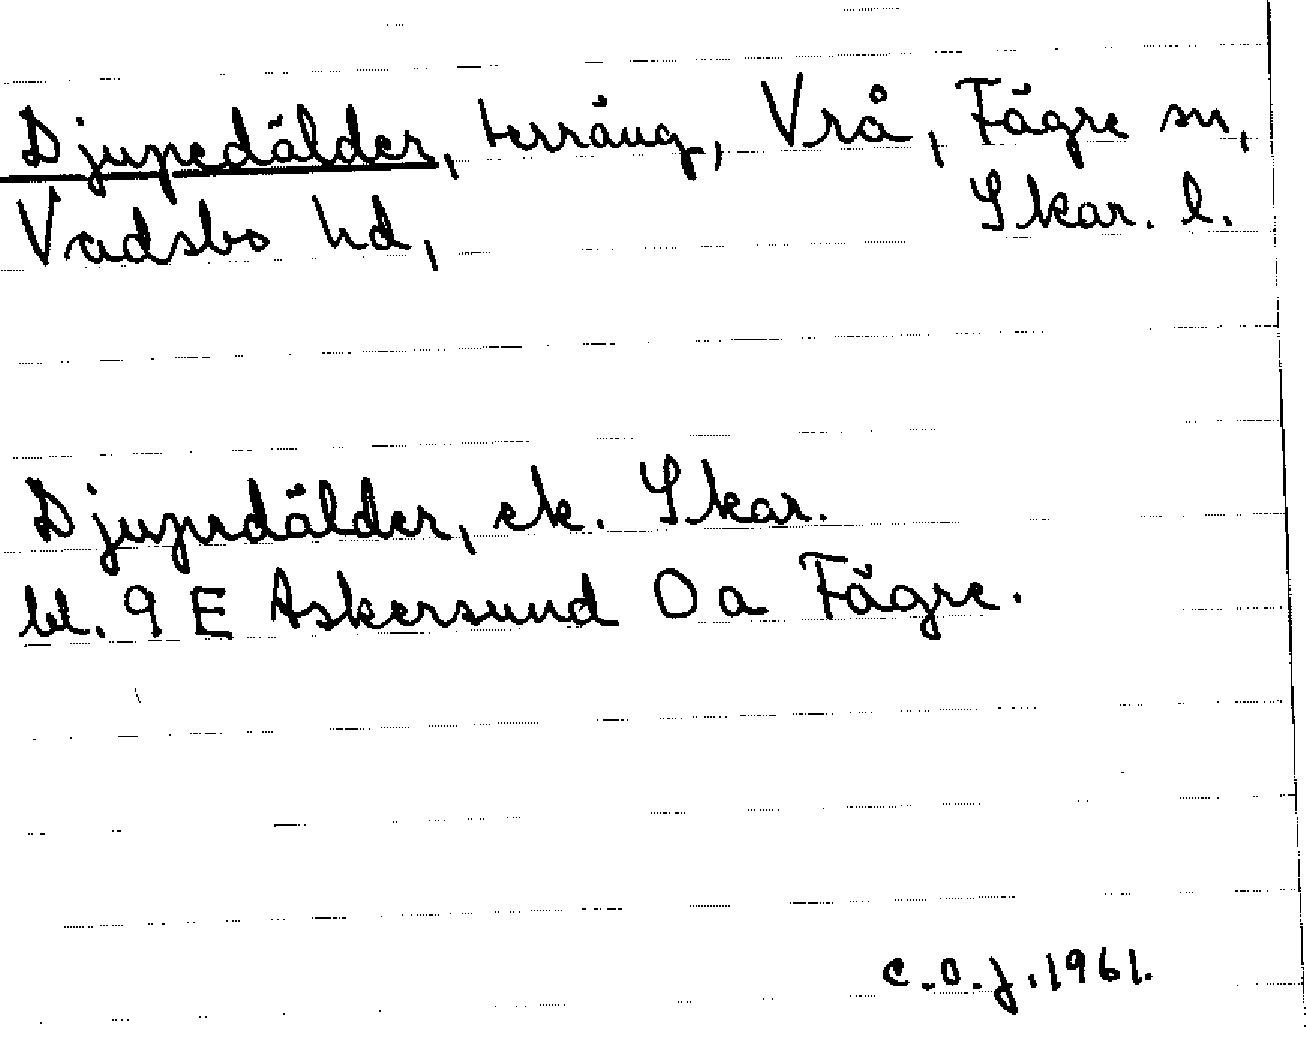 Djupedälder, terräng, Vrå, Fägre sn,
Vadsbo hd, Skar. l.
Djupedälder, ek. Skar.
bl. 9 E Askersund 0 a Fägre.
C.O.J. 1961.